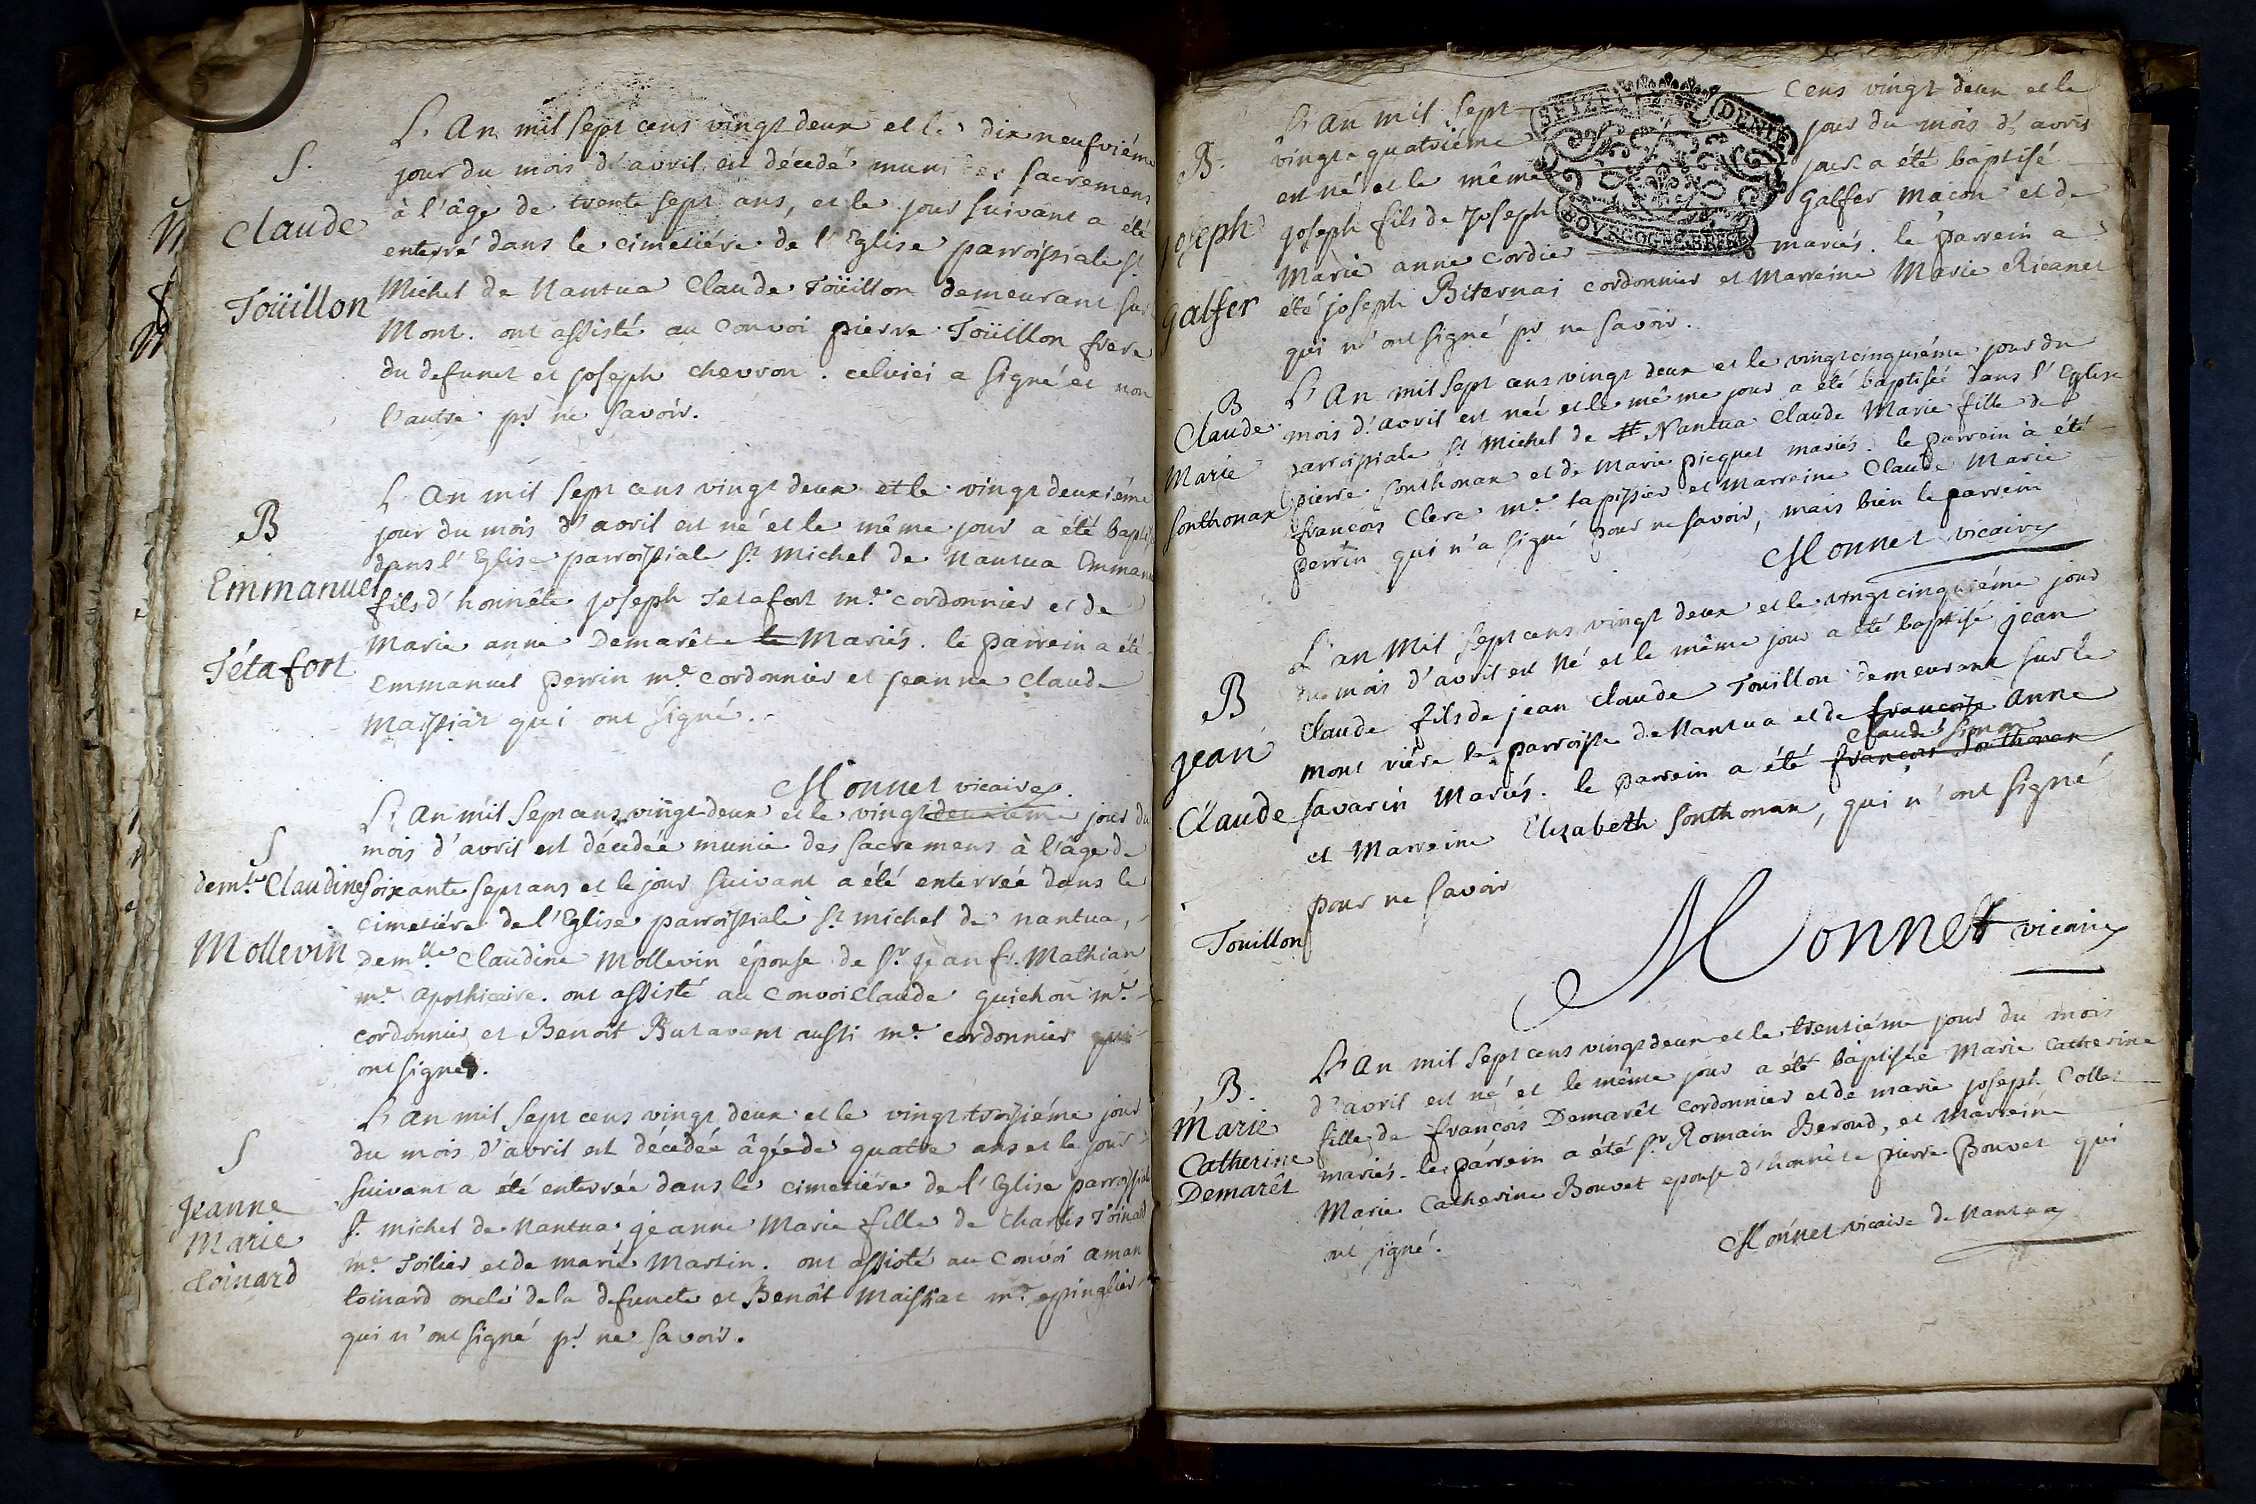 S.
Claude
Toüillon
L'An mil sept cens vingt deux et le dix neufviéme
jour du mois d'avril est décedé muni des sacremens
à l'âge de trente sept ans, et le jour suivant a été
enterré dans le cimetiére de l'Eglise parroissiale St
Michel de Nantua Claude Toüillon demeurant sur
Mont. ont assisté au convoi pierre Toüillon frere
du defunct et joseph chevron. celuici a signé et non
l'autre pr ne savoir.
B
Emmanuel
Tétafort
L'An mil sept cens vingt deux et le vingt deuxiéme
jour du mois d'avril est né et le même jour a été bapti
dans l'Eglise parroissiale St Michel de Nantua Emman
fils d'honnête joseph Tetafort me cordonnier et de
Marie anne Demarête le Mariés. le parrein a été
emmanuel perrin me cordonnier et jeanne claude
Maissiat qui ont signé.
Monnet vicaire.
S
demlle Claudine
Mollevin
L'An mil sept cens vingt deux et le vingt deuxieme jour du
mois d'avril est décedée munie des sacremens à l'âge de
soixante sept ans et le jour suivant a été enterrée dans le
cimetiére de l'Eglise parroissiale St michel de nantua,
demlle Claudine Mollevin épouse de Sr jean fr. Mathian
me apothicaire. ont assisté au convoi Claude guichon me
cordonnier et Benoît Butavent aussi me cordonnier qui
ont signés.
S
Jeanne
Marie
Toinard
L'An mil sept cens vingt deux et le vingt troisiéme jour
du mois d'avril est décedée âgée de quatre ans et le jour
suivant a été enterrée dans le cimetiére de l'Eglise parroissial
St michel de Nantua, jeanne Marie fille de Charles Toinard
me Toilier et de marie Martin. ont assisté au convoi aman
toinard oncle de la defuncte et Benoît Maissiat me epinglier
qui n'ont signé pr ne savoir.
B.
joseph
galfer
SEIZE DENIE
BOVRGOGNE BRESSE
L'An mil sept cens vingt deux et le
vingt quatriéme jour du mois d'avril
est né et le même jour a été baptisé
joseph fils de Joseph galfer macon et de
Marie anne cordier mariés. le parrein a
été joseph Biternai cordonnier et Marreine Marie Ricanet
qui n'ont signé pr ne savoir.
B
Claude
Marie
Sonthonax
L'An mil sept cens vingt deux et le vingt cinquiéme jour du
mois d'avril est née et le même jour a été baptisée dans l'Eglise
parroissiale St Michel de Nantua Claude Marie fille de
pierre Sonthonax et de Marie picquet mariés. le parrein a été
françois Clerc me tapissier et Marreine Claude Marie
perrin qui n'a signé pour ne savoir, mais bien le parrein
Monnet vicaire
B
jean
Claude
Touillon
L'an Mil sept cens vingt deux et le vingt cinquiéme jour
du mois d'avril est Né et le même jour a été baptisé jean
Claude fils de jean claude Touillon demeurant sur le
mont riére la parroisse de Nantua et de françoise Anne
Savarin Mariés. le parrein a été françois Sonthonax Claude Simon
et Marreine Elizabeth Sonthonax, qui n'ont signé
pour ne savoir
Monnet vicaire
B.
Marie
Catherine
Demarêt
L'An mil sept cens vingt deux et le trentiéme jour du mois
d'avril est né et le même jour a été baptisée Marie Catherine
fille de françois Demarêt cordonnier et de marie joseph Collet
mariés. le parrein a été Sr Romain Beroud, et Marreine
Marie Catherine Bouvet epouse d'honnête pierre Bouvet qui
ont signé.
Monnet vicaire de Nantua